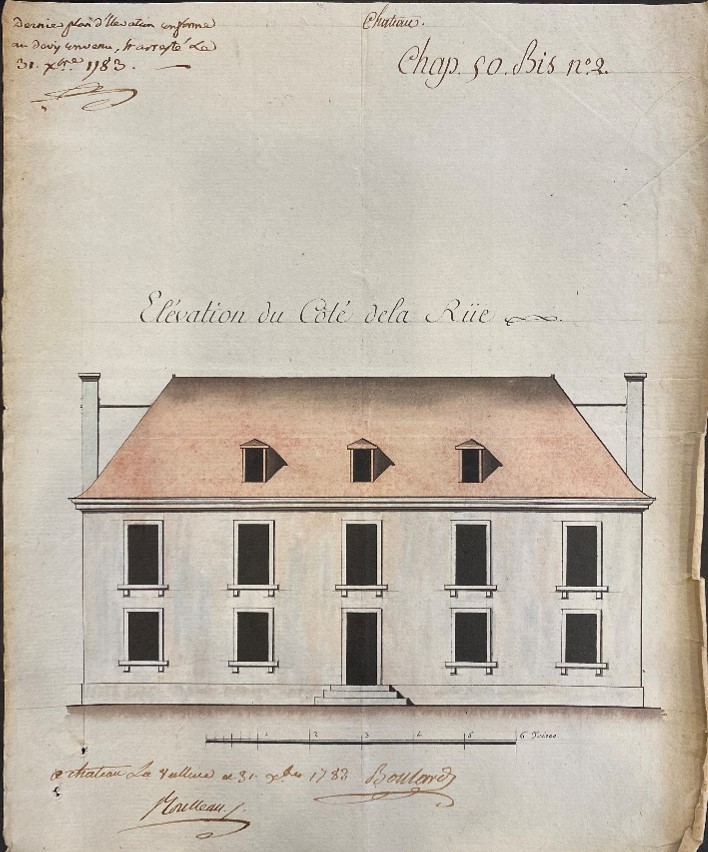 Dernier plan d'Elevation conforme
au devis convenu, & arresté Le
31. xbre 1783.
Chateau.
Chap. 50. Bis nº 2.
Elévation du Côté dela Rüe
1 2 3 4 5 6 Toises
chateau La Valliere ce 31. xbre 1783 Boulard